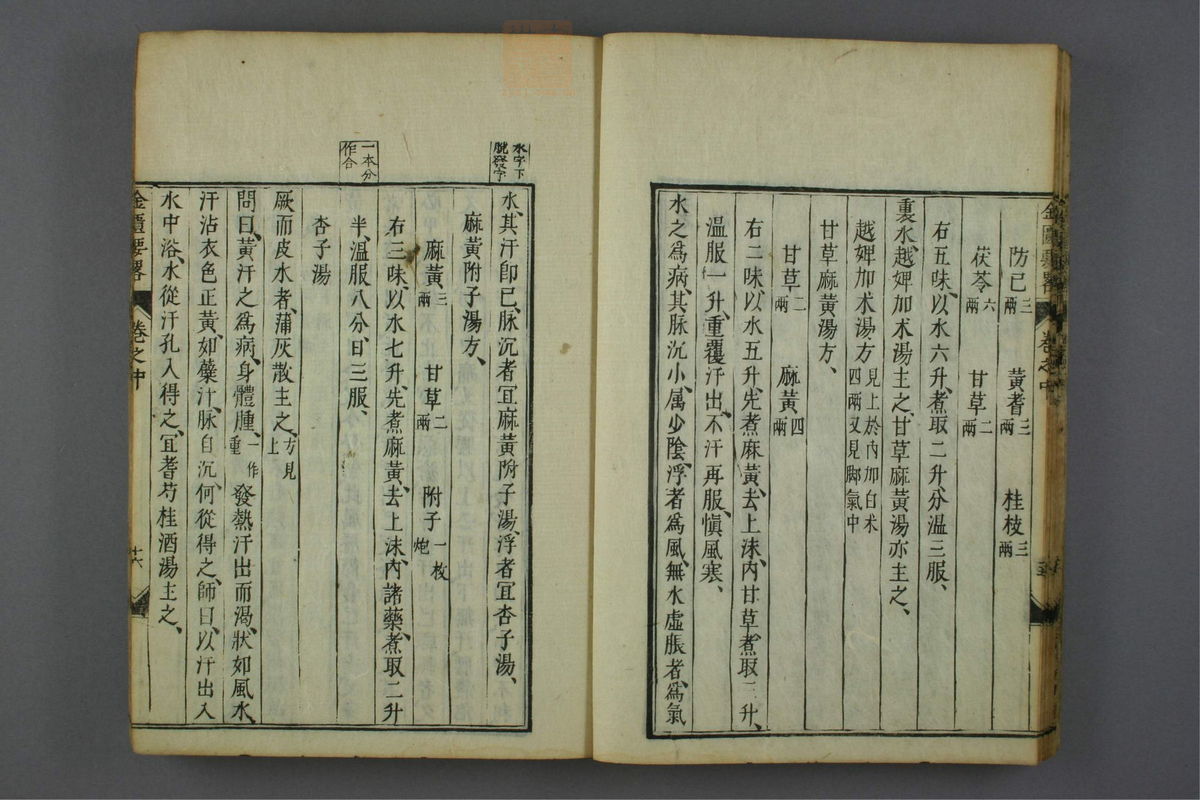 防己三兩 黃耆三兩 桂枝三兩
茯苓六兩 甘草二兩
右五味、以水六升、煮取二升、分溫三服、
裏水、越婢加朮湯主之、甘草麻黃湯亦主之、
越婢加朮湯方見上於內加白朮四兩又見脚氣中
甘草麻黃湯方、
甘草二兩 麻黃四兩
右二味、以水五升、先煮麻黃、去上沫、內甘草、煮取三升、
溫服一升、重覆汗出、不汗再服、愼風寒、
水之爲病、其脉沉小、属少陰、浮者爲風、無水虛脹者、爲氣
水字下
脫發字
水、其汗卽已、脉沉者冝麻黃附子湯、浮者宜杏子湯、
麻黃附子湯方、
麻黃三兩 甘草二兩 附子一枚炮
右三味、以水七升、先煮麻黃、去上沫、內諸藥、煮取二升
一本分
作合
半、溫服八分、日三服、
杏子湯
厥而皮水者、蒲灰散主之、方見上
問曰、黃汗之爲病、身體腫、一作重發熱汗出而渴、狀如風水、
汗沾衣色正黃、如蘗汁、脉自沉、何從得之、師曰、以汗出入
水中浴、水從汗孔入得之、冝耆芍桂酒湯主之、
金匱要畧 卷之中 十六